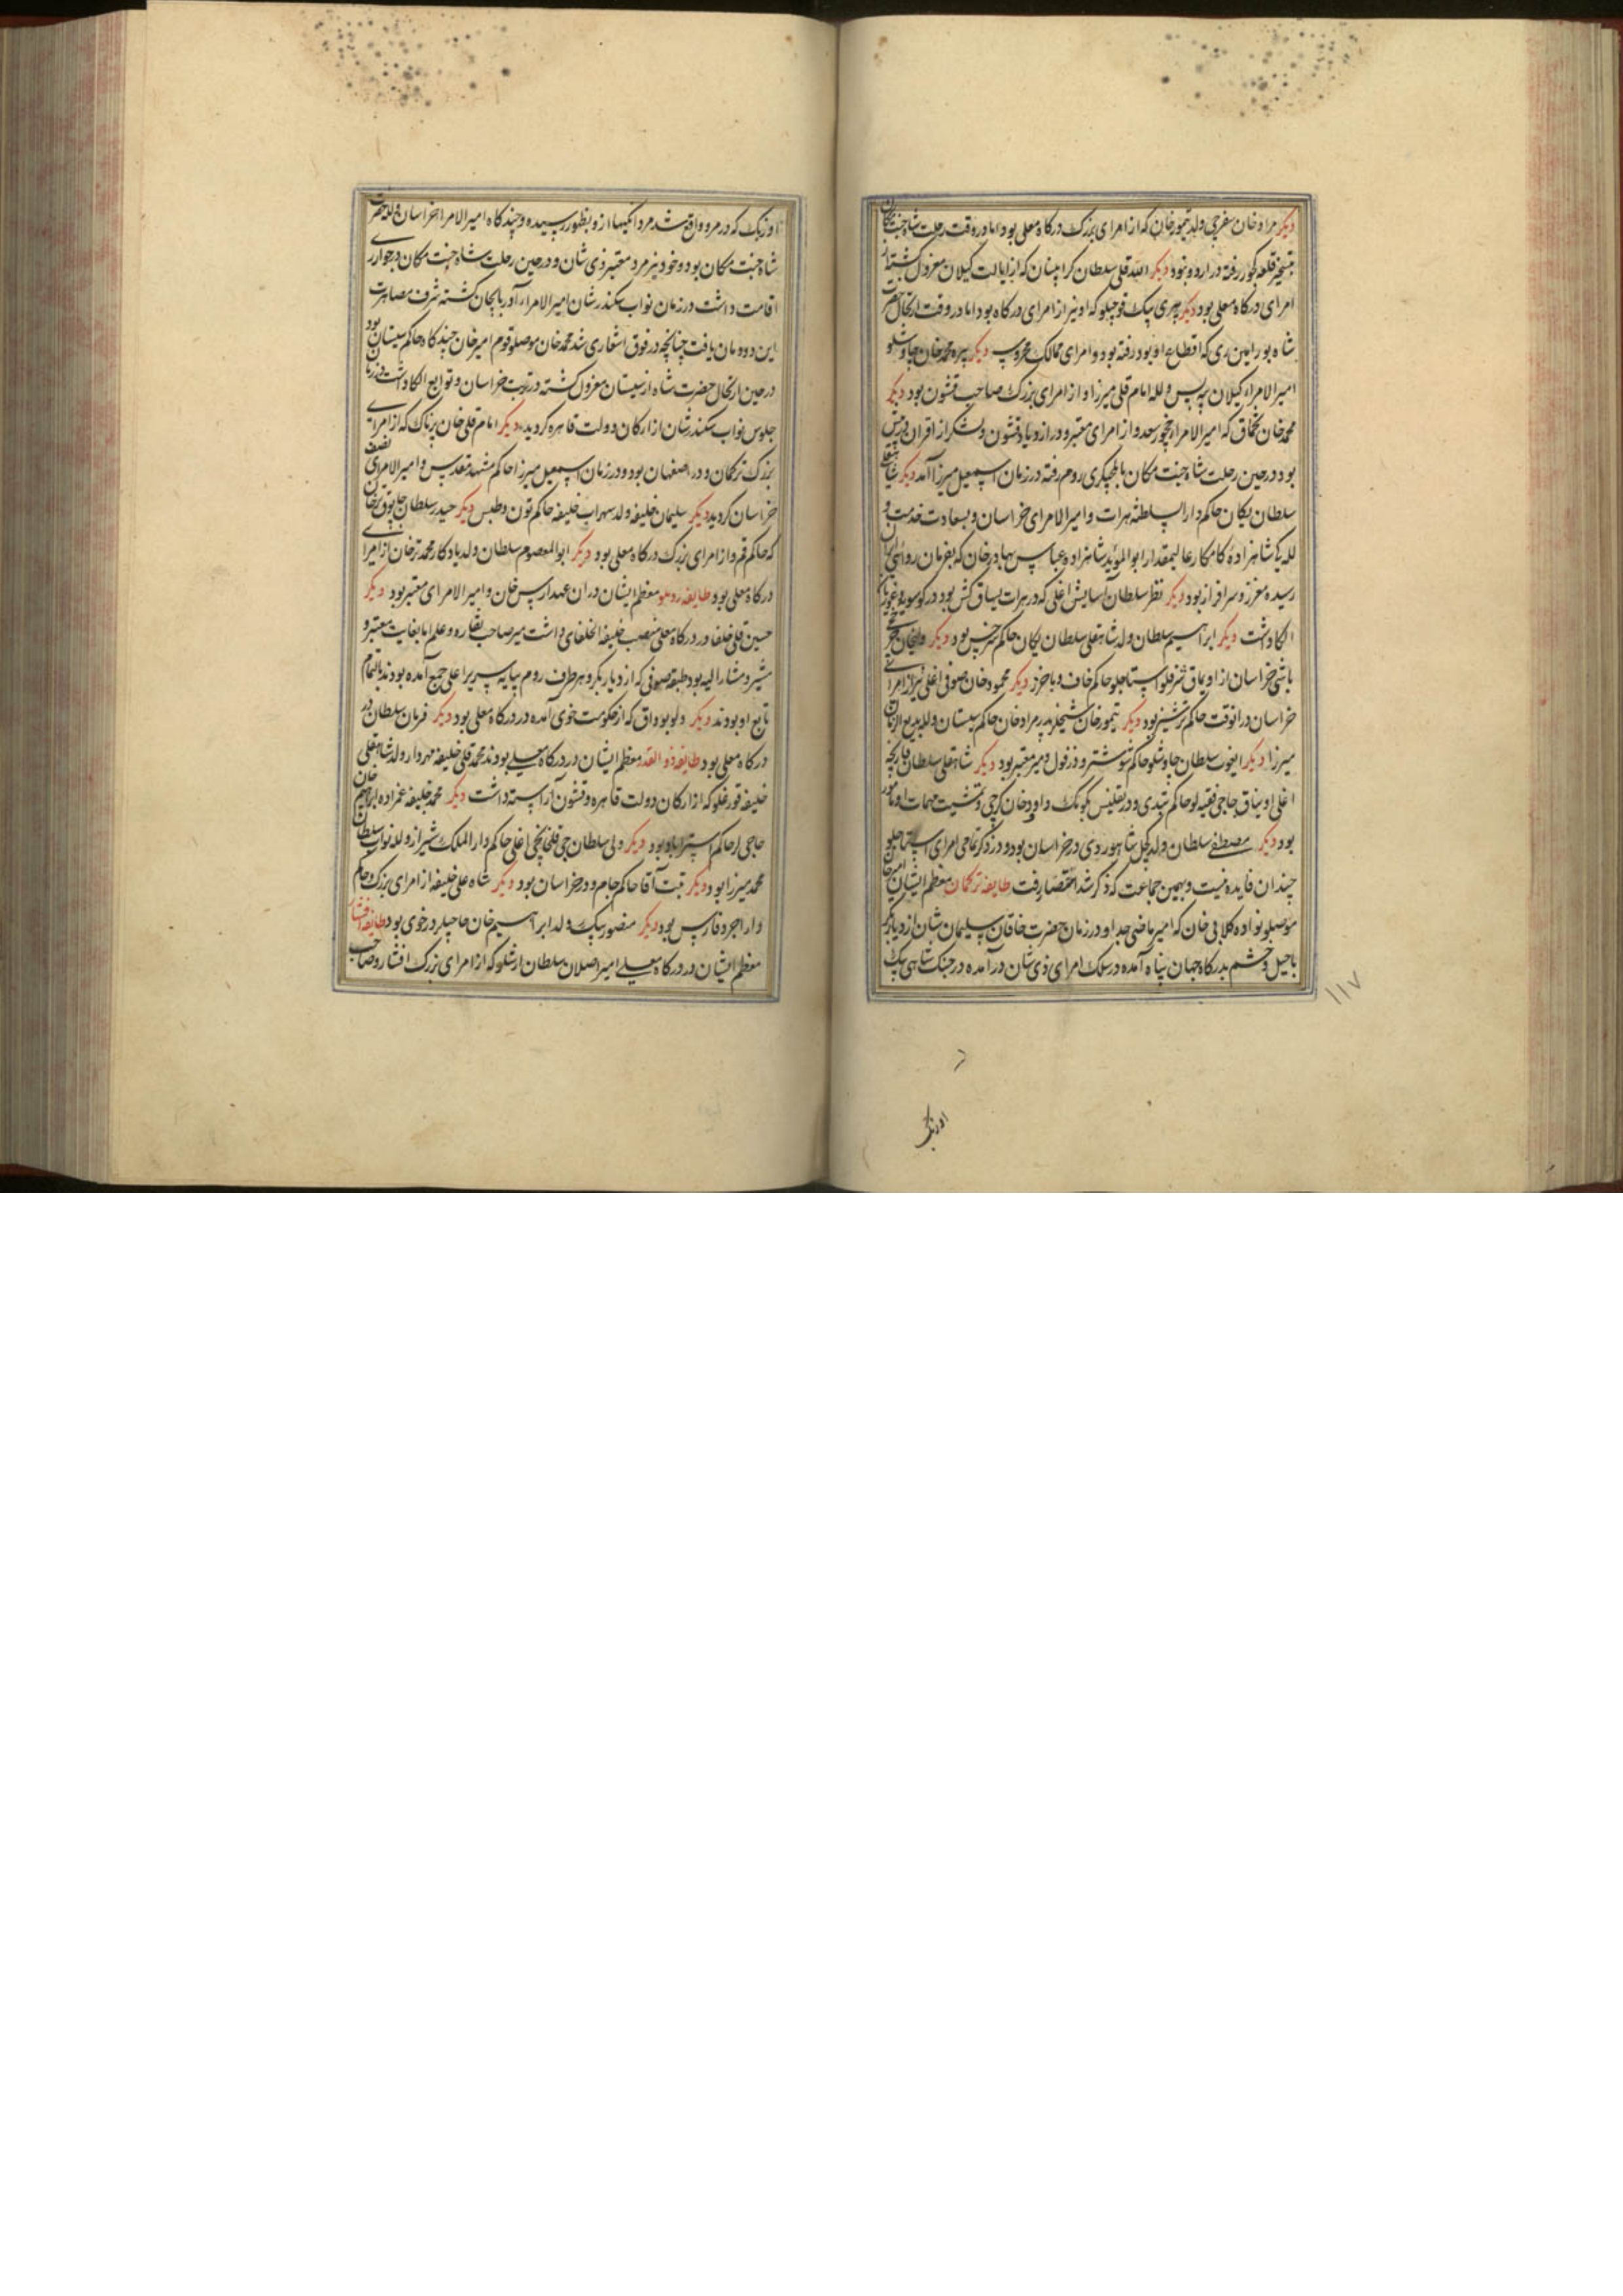 دیکر مراد خان سفرچی ولد تیمور خان که از امرای بزرک درکاه معلی بود اما در وقت رحلت شاه جنت مکان
بتسخیر قلعه کور رفته در اردو نبود دیکر الله قلی سلطان که از ایالت کیلان معزول کشته از
امرای درکاه معلی بود دیکر پیری بیک قوچیلو که او نیز از امرای درکاه بود اما در وقت ارتحال حضرت
شاه بورامین ری که اقطاع او بود رفته بود و امرای ممالک محروسه دیکر پیره محمد خان چاوشلو
امیر الامراء کیلان بیه پس و لله امام قلی میرزا و از امرای بزرک صاحب قشون بود دیکر
محمد خان تخماق که امیر الامراء چخور سعد و از امرای معتبر و در ازدیاد قشون و لشکر از اقران در پیش
بود در حین رحلت شاه جنت مکان بایلچیکری روم رفته در زمان اسمعیل میرزا آمد دیکر شاهقلی
سلطان یکان حاکم دار السلطنه هرات و امیر الامرای خراسان و بسعادت خدمت و
لله کی شاهزاده کامکار عالیمقدار ابو المؤید شاهزاده عباس بهادر خان که بفرمان روائی ایران
رسیده معزز و سرافراز بود دیکر نظر سلطان آسایش اغلی که در هرات یساق کش بود در کوسویه و غوریان
الکا داشت دیکر ابراهیم سلطان ولد شاهقلی سلطان یکان حاکم سرخس بود دیکر
باشی خراسان از اویماق شرفلو استاجلو حاکم خاف و باخرز دیکر محمود خان صوفی اغلی نیز از امرای
خراسان در آنوقت حاکم ترشیز بود دیکر تیمور خان شیخلر پدر مراد خان حاکم سیستان و لله بدیع الزمان
میرزا دیکر ایغوت سلطان چاوشلو حاکم شوشتر و دزفول و میر معتبر بود دیکر شاهقلی سلطان قارنجه
اغلی اویناق حاجی فقیه لو حاکم شیدی و در تفلیس بکومک داود خان کرجی و تمشیت مهمات او مامور
بود دیکر مصطفی سلطان ولد کچل شاهوردی در خراسان بود و در ذکر تمامی امرای استاجلو
چندان فایده نیست و بهمین جماعت که ذکر شد اختصار رفت طایفه ترکمان معظم ایشان امیر خان
موصلو نواده کلابی خان که امیر ماضی جد او در زمان حضرت خاقان سلیمان شان از دیار بکر
با خیل و حشم بدرکاه جهان پناه آمده در سلک امرای ذی شان در آمده در جنک شاهی بیک
۱۱۷
اوزبک
اوزبک که در مرو واقع شد مردانکیها از و بظهور رسیده و چندکاه امیر الامراء خراسان و لله حضرت
شاه جنت مکان بود و خود نیز مرد معتبر ذی شان و در حین رحلت شاه جنت مکان در خوار ری
اقامت داشت در زمان نواب سکندر شان امیر الامراء آذربایجان کشته شرف مصاهرت
این دودمان یافت چنانچه در فوق اشعاری شد محمد خان موصلو قوم امیر خان چندکاه حاکم سیستان بود
در حین ارتحال حضرت شاه از سیستان معزول کشته در تربت خراسان و توابع الکا داشت در زمان
جلوس نواب سکندر شان از ارکان دولت قاهره کردید دیکر امام قلی خان پرناک که از امرای
بزرک ترکمان و در اصفهان بود و در زمان اسمعیل میرزا حاکم مشهد مقدس و امیر الامرای نصف
خراسان کردید دیکر سلیمان خلیفه ولد سهراب خلیفه حاکم تون و طبس دیکر حیدر سلطان چابوق ترخان
که حاکم قم و از امرای بزرک درکاه معلی بود دیکر ابو المعصوم سلطان ولد یادکار محمد ترخان از امرای
درکاه معلی بود طایفه روملو معظم ایشان در آن عهد ارس خان و امیر الامرای معتبر بود دیکر
حسین قلی خلفا در درکاه معلی منصب خلیفة الخلفائی داشت میر صاحب نقاره و علم اما بغایت معتبر و
مشیر و مشار الیه بود طبقه صوفی که از دیار بکر و هر طرف روم بپایه سریر اعلی جمع آمده بودند بالتمام
تابع او بودند دیکر دلو بوداق که از حکومت خوی آمده در درکاه معلی بود دیکر فرمان سلطان در
درکاه معلی بود طایفه ذو القدر معظم ایشان در درکاه معلی بودند محمد قلی خلیفه مهردار ولد شاهقلی
خلیفه قورغلو که از ارکان دولت قاهره و قشون آراسته داشت دیکر محمد خلیفه عمزاده ابراهیم خان
حاجی لر حاکم استراباد بود دیکر ولی سلطان قلخانچی اغلی حاکم دار الملک شیراز و لله نواب سلطان
محمد میرزا بود دیکر تبت آقا حاکم جام و در خراسان بود دیکر شاه علی خلیفه از امرای بزرک و حاکم
داراجرد فارس بود دیکر منصور بیک ولد ابراهیم خان حاجیلر در خوی بود طایفه افشار
معظم ایشان در درکاه معلی امیر اصلان سلطان ارشلو که از امرای بزرک افشار و صاحب